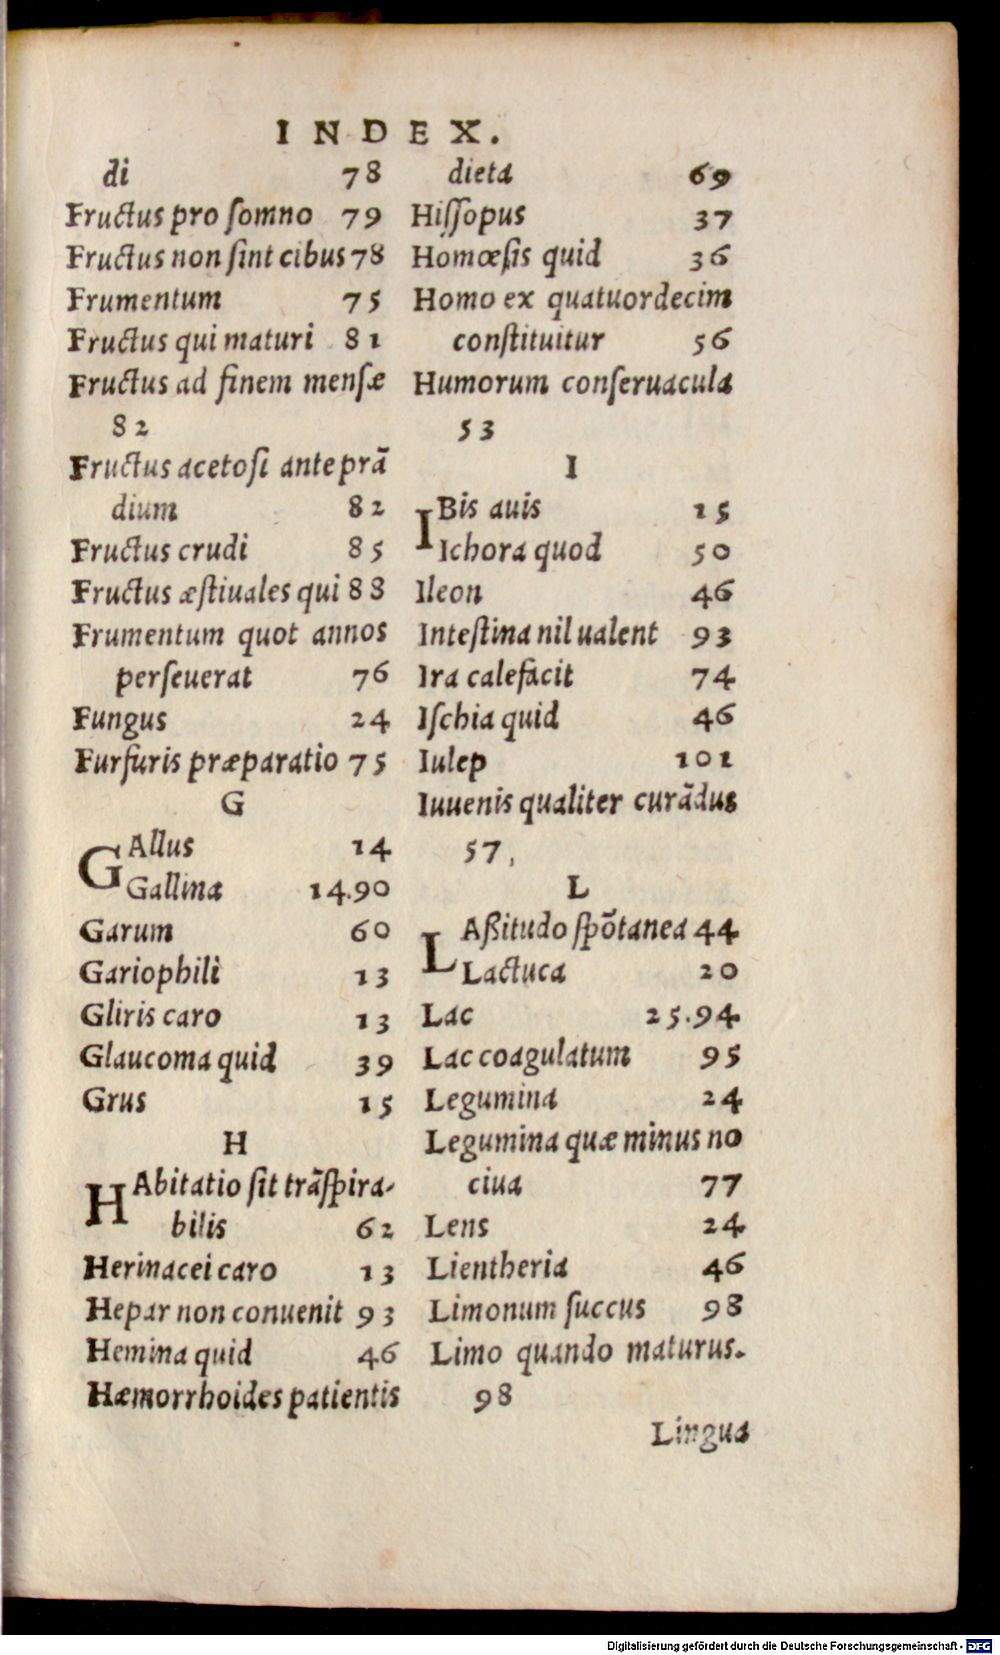 INDEX.
di 78
Fructus pro ſomno 79
Fructus non ſint cibus 78
Frumentum 75
Fructus qui maturi 81
Fructus ad finem menſæ
82
Fructus acetoſi ante prã
dium 82
Fructus crudi 85
Fructus æſtiuales qui 88
Frumentum quot annos
perſeuerat 76
Fungus 24
Furfuris præparatio 75
G
GAllus 14
Gallina 14.90
Garum 60
Gariophili 13
Gliris caro 13
Glaucoma quid 39
Grus 15
H
HAbitatio ſit trãſpira-
bilis 62
Herinacei caro 13
Hepar non conuenit 93
Hemina quid 46
Hæmorrhoides patientis
dieta 69
Hiſſopus 37
Homœſis quid 36
Homo ex quatuordecim
conſtituitur 56
Humorum conſeruacula
53
I
IBis auis 15
Ichora quod 50
Ileon 46
Inteſtina nil ualent 93
Ira calefacit 74
Iſchia quid 46
Iulep 101
Iuuenis qualiter curãdus
57,
L
LAßitudo ſpõtanea 44
Lactuca 20
Lac 25.94
Lac coagulatum 95
Legumina 24
Legumina quæ minus no
ciua 77
Lens 24
Lientheria 46
Limonum ſuccus 98
Limo quando maturus.
98
Lingua
Digitalisierung gefördert durch die Deutsche Forschungsgemeinschaft - DFG